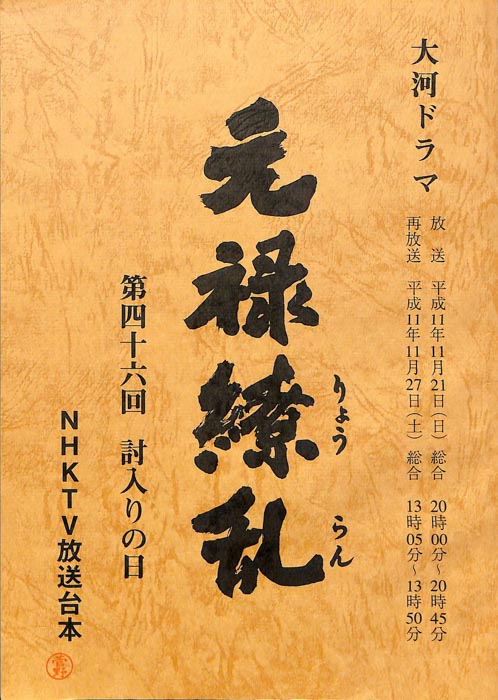 大河ドラマ
放　送　平成11年11月21日（日）総合　20時00分～20時45分
再放送　平成11年11月27日（土）総合　13時05分～13時50分
元禄繚乱
りょう　らん
第四十六回　討入りの日
NHKTV放送台本